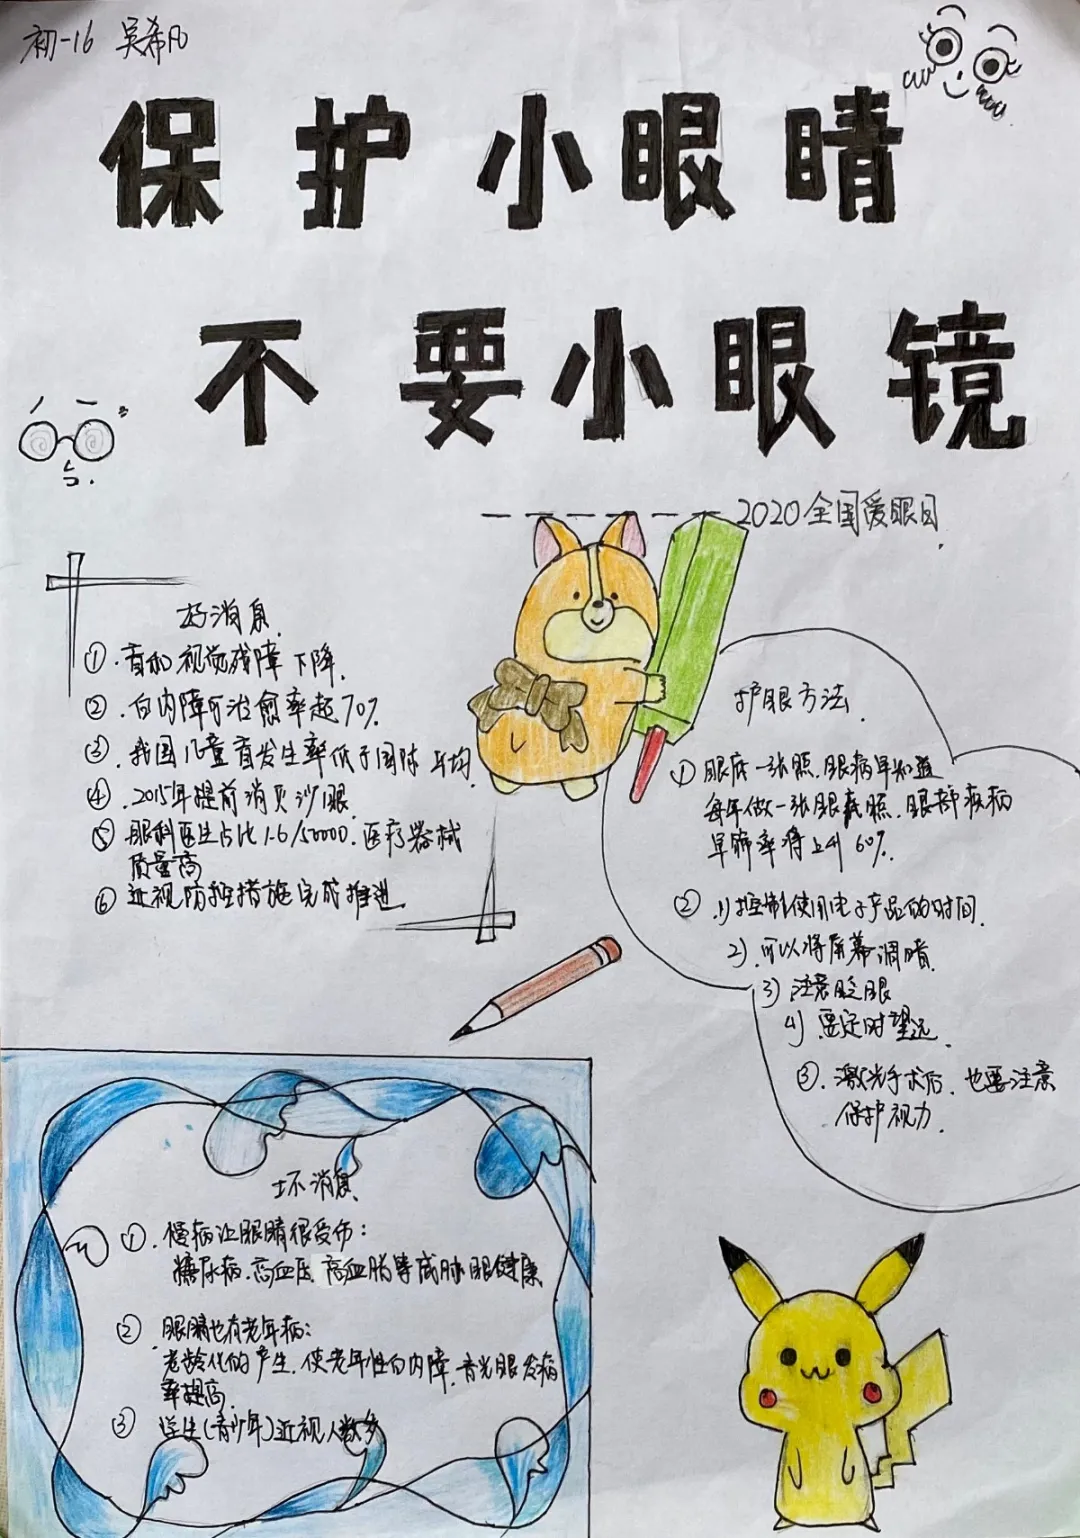 初一16 吴希凡
保护小眼睛
不要小眼镜
2020全国爱眼日
好消息
①.盲和视觉残障下降.
②.白内障可治愈率超70%
③.我国儿童盲发生率低于国际平均
④.2015年提前消灭沙眼.
⑤眼科医生占比1.6/50000.医疗器械
质量高
⑥近视防控措施完成推进.
护眼方法.
①眼底一张照.眼病早知道
每年做一张眼底照.眼部疾病
早筛率将上升60%.
②.1)控制使用电子产品的时间.
2).可以将屏幕调暗.
3)注意眨眼
4)要定时望远.
③.激光手术后.也要注意
保护视力.
坏消息
①.慢病让眼睛很受伤:
糖尿病.高血压.高血脂等威胁眼健康
②眼睛也有老年病:
老龄化的产生.使老年性白内障.青光眼发病
率提高.
③学生(青少年)近视人数多